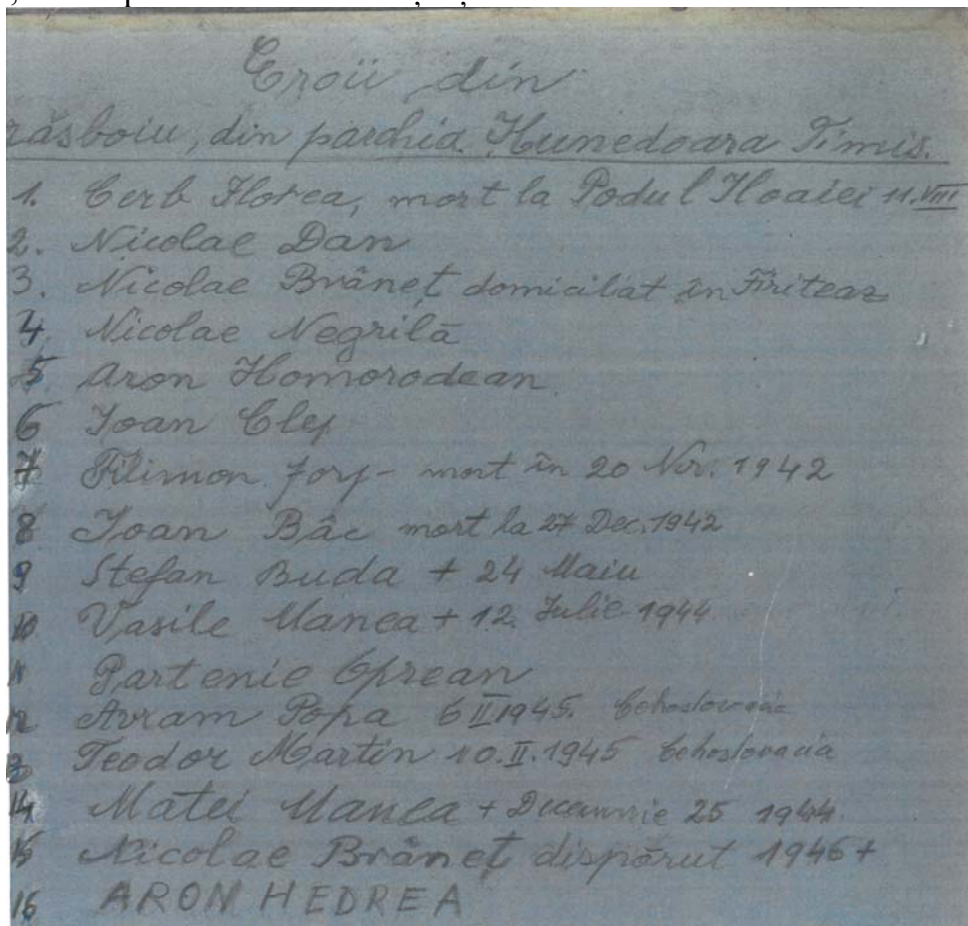 Eroii din
răsboiu, din parohia Hunedoara Timis.
1. Cerb Florea, mort la Podul Iloaiei 11.VIII
2. Nicolae Dan
3. Nicolae Brâneț domicilat în Firiteaz
4. Nicolae Negrilă
5 Aron Homorodean
6 Ioan Clej
7 Filimon - mort în 20 Nov. 1942
8 Ioan Bâc mort la 27 Dec. 1942
9 Stefan Buda + 24 Maiu
10 Vasile Manea + 12. Iulie 1944
11 Partenie Oprean
12 Avram Popa 6 II 1945. Cehoslovacia
13 Teodor Martin 10.II.1945 Cehoslovacia
14 Matei Manea + Decemvrie 25 1944.
15 Nicolae Brâneț dispărut 1946 +
16 ARON HEDREA